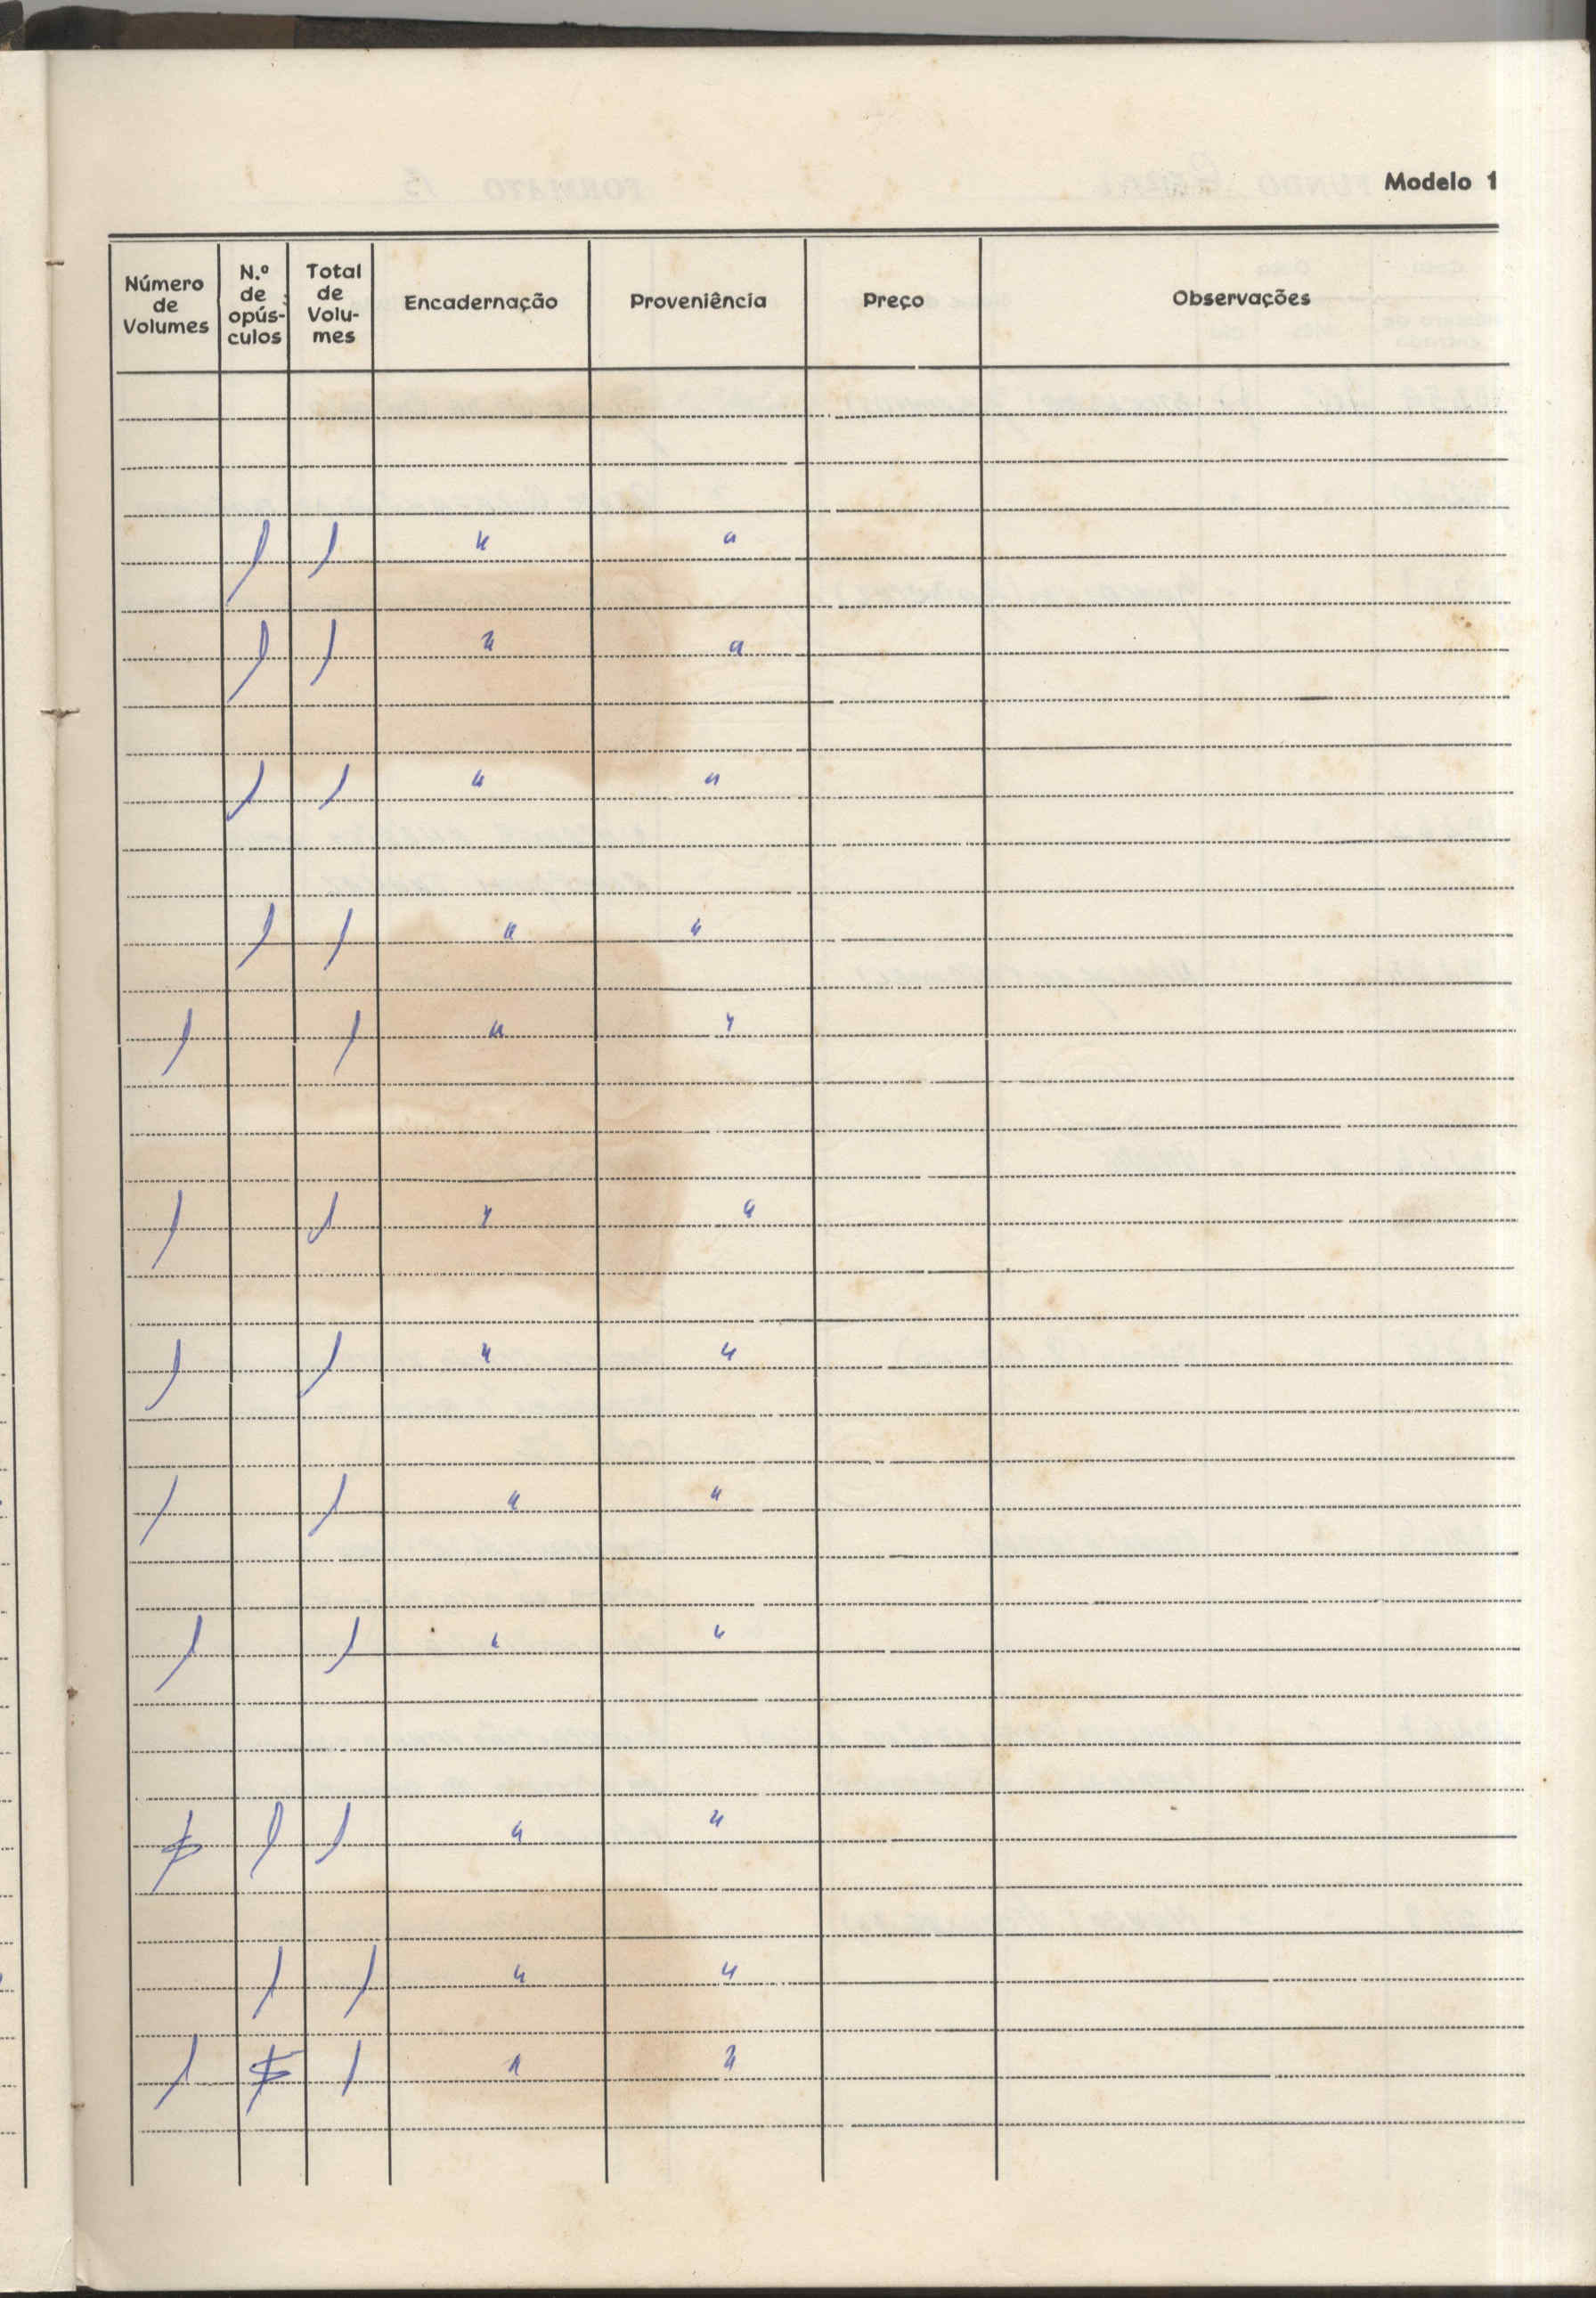 Modelo 1
Número de Volumes | N.º de opús-culos | Total de Volu-mes | Encadernação | Proveniência | Preço | Observações
1 1 " "
1 1 " "
1 1 " "
1 1 " "
1 1 " "
1 1 " "
1 1 " "
1 1 " "
1 1 " "
1 1 " "
1 1 " "
1 1 " "